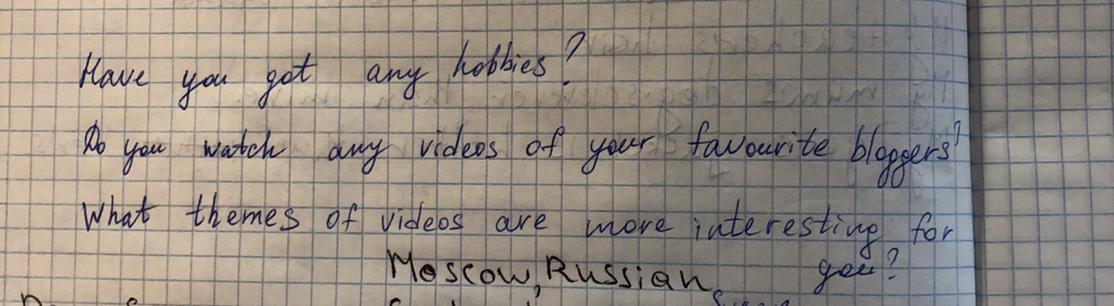 Have you got any hobbies?
Do you watch any videos of your favourite bloggers?
What themes of videos are more interesting for
you?
Moscow, Russian